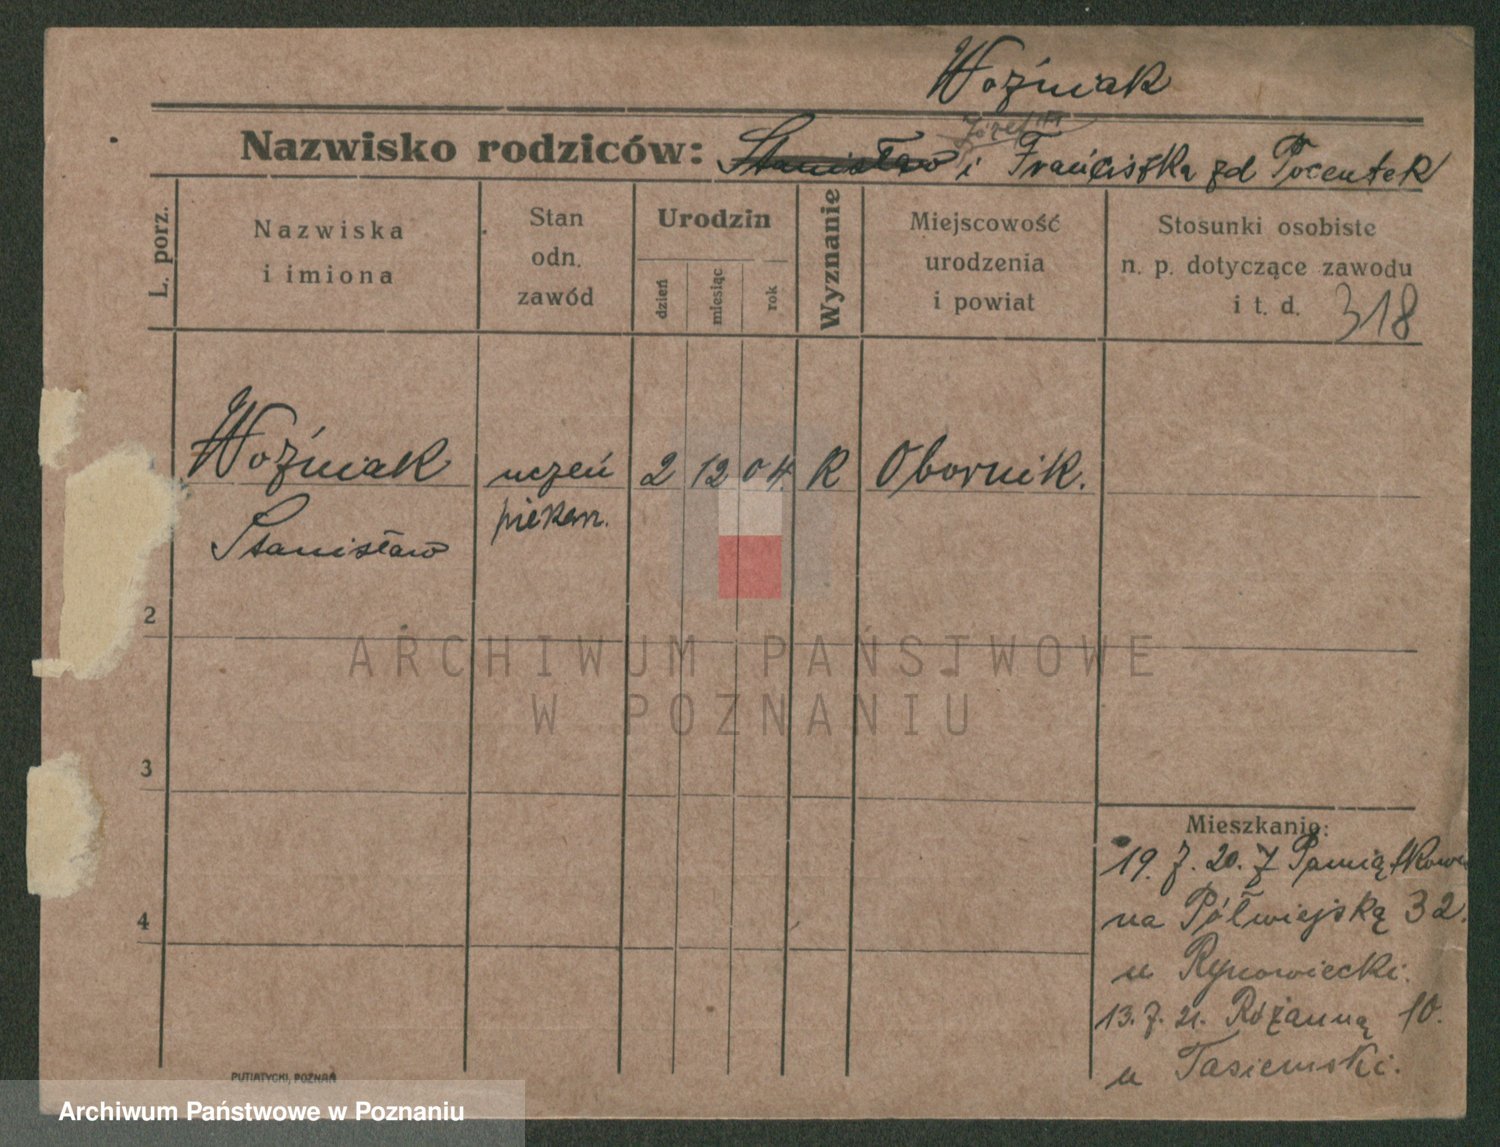 Woźniak
Józef
Nazwisko rodziców: Stanisław i Franciszka zd Pocentek
L. porz.
Nazwiska
i imiona
Stan
odn.
zawód
Urodzin
dzień
miesiąc
rok
Wyznanie
Miejscowość
urodzenia
i powiat
Stosunki osobiste
n. p. dotyczące zawodu
i t. d. 318
Woźniak uczeń 2 12 04 R Obornik.
piekar.
Stanisław
2
ARCHIWUM PAŃSTWOWE
W POZNANIU
3
Mieszkanie:
19. 7. 20. z Pamiątkowe
4
na Półwiejską 32.
u Rynowiecki.
13. 7. 21. Różanną 10.
u Tasiemski.
PUTIATYCKI, POZNAŃ
Archiwum Państwowe w Poznaniu